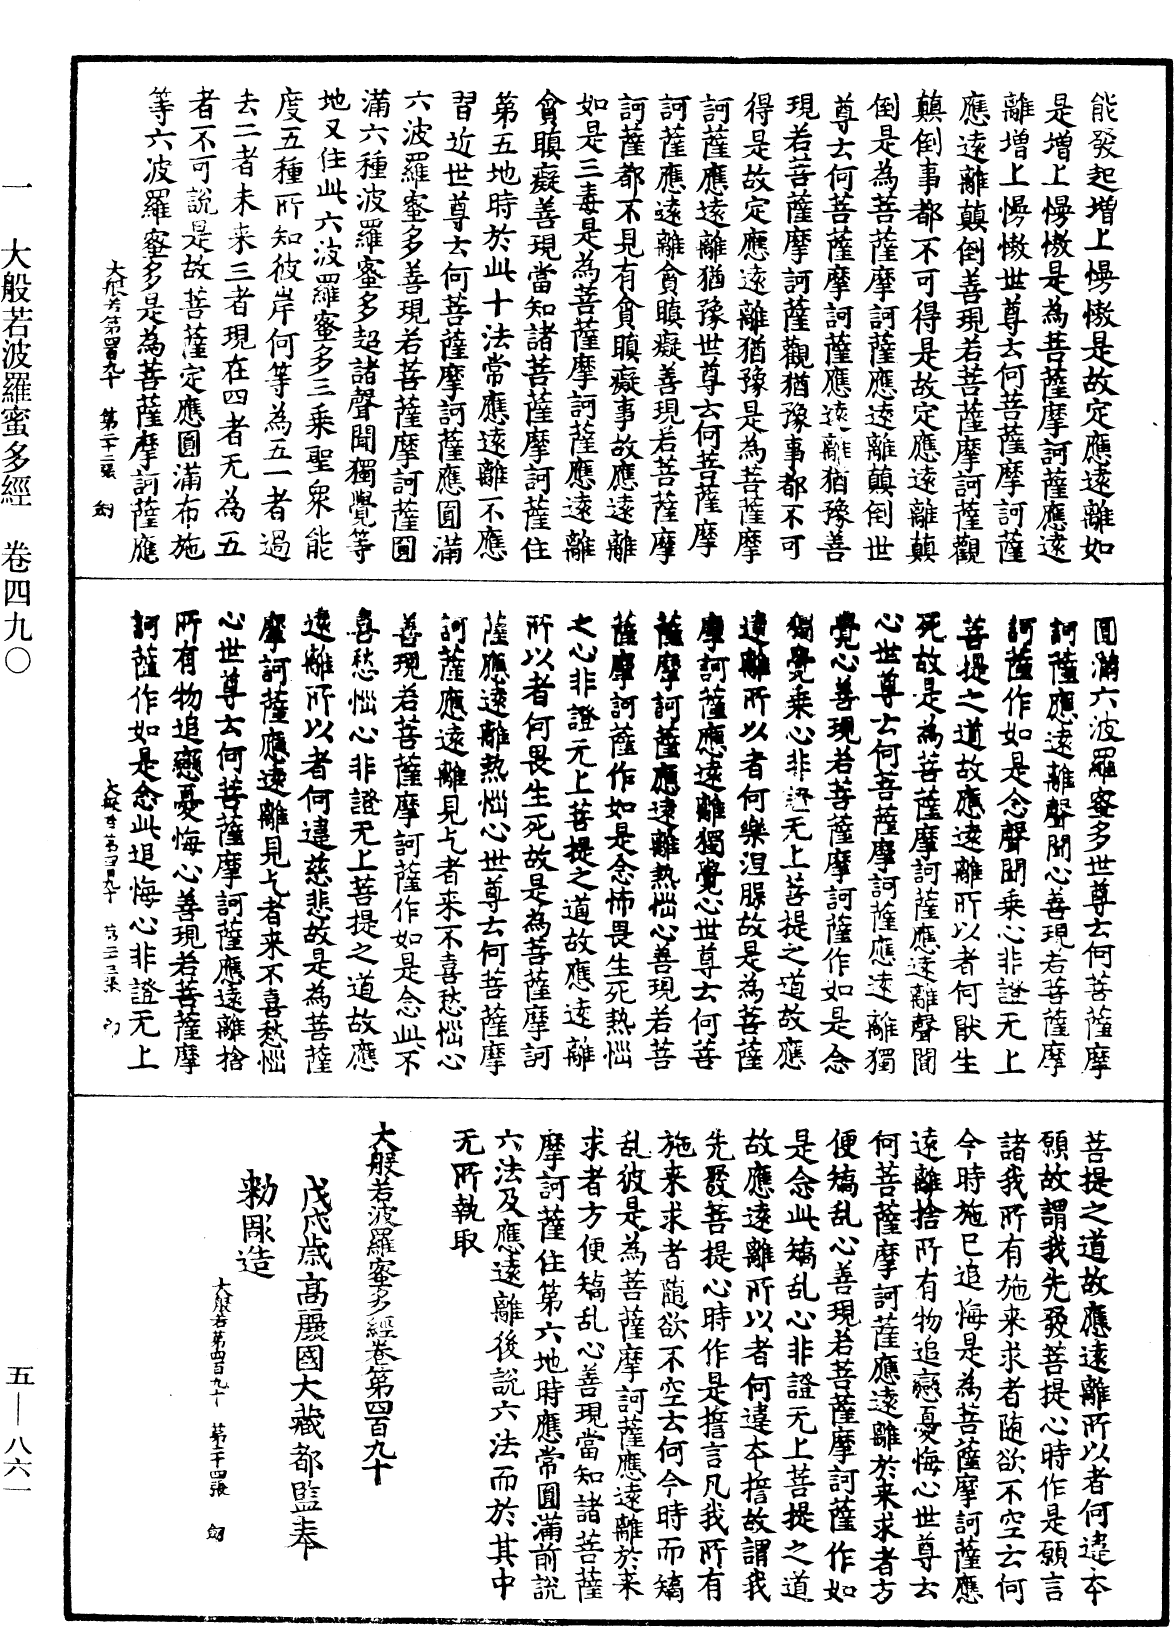 能發起增上慢慠是故定應遠離如
是增上慢慠是為菩薩摩訶薩應遠
離增上慢慠世尊云何菩薩摩訶薩
應遠離顛倒善現若菩薩摩訶薩觀
顛倒事都不可得是故定應遠離顛
倒是為菩薩摩訶薩應遠離顛倒世
尊云何菩薩摩訶薩應遠離猶豫善
現若菩薩摩訶薩觀猶豫事都不可
得是故定應遠離猶豫是為菩薩摩
訶薩應遠離猶豫世尊云何菩薩摩
訶薩應遠離貪瞋癡善現若菩薩摩
訶薩都不見有貪瞋癡事故應遠離
如是三毒是為菩薩摩訶薩應遠離
貪瞋癡善現當知諸菩薩摩訶薩住
第五地時於此十法常應遠離不應
習近世尊云何菩薩摩訶薩應圓滿
六波羅蜜多善現若菩薩摩訶薩圓
滿六種波羅蜜多超諸聲聞獨覺等
地又住此六波羅蜜多三乘聖眾能
度五種所知彼岸何等為五一者過
去二者未來三者現在四者无為五
者不可說是故菩薩定應圓滿布施
等六波羅蜜多是為菩薩摩訶薩應
大般若第四百九十 第二十二張 劒
圓滿六波羅蜜多世尊云何菩薩摩
訶薩應遠離聲聞心善現若菩薩摩
訶薩作如是念聲聞乘心非證无上
菩提之道故應遠離所以者何猒生
死故是為菩薩摩訶薩應遠離聲聞
心世尊云何菩薩摩訶薩應遠離獨
覺心善現若菩薩摩訶薩作如是念
獨覺乘心非證无上菩提之道故應
遠離所以者何樂涅槃故是為菩薩
摩訶薩應遠離獨覺心世尊云何菩
薩摩訶薩應遠離熱惱心善現若菩
薩摩訶薩作如是念怖畏生死熱惱
之心非證无上菩提之道故應遠離
所以者何畏生死故是為菩薩摩訶
薩應遠離熱惱心世尊云何菩薩摩
訶薩應遠離見乞者來不喜愁惱心
善現若菩薩摩訶薩作如是念此不
喜愁惱心非證无上菩提之道故應
遠離所以者何違慈悲故是為菩薩
摩訶薩應遠離見乞者來不喜愁惱
心世尊云何菩薩摩訶薩應遠離捨
所有物追戀憂悔心善現若菩薩摩
訶薩作如是念此追悔心非證无上
大般若第四百九十 第二十三張
菩提之道故應遠離所以者何違本
願故謂我先發菩提心時作是願言
諸我所有施來求者隨欲不空云何
今時施已追悔是為菩薩摩訶薩應
遠離捨所有物追戀憂悔心世尊云
何菩薩摩訶薩應遠離於來求者方
便矯乱心善現若菩薩摩訶薩作如
是念此矯乱心非證无上菩提之道
故應遠離所以者何違本誓故謂我
先發菩提心時作是誓言凡我所有
施來求者隨欲不空云何今時而矯
乱彼是為菩薩摩訶薩應遠離於來
求者方便矯乱心善現當知諸菩薩
摩訶薩住第六地時應常圓滿前說
六法及應遠離後說六法而於其中
无所執取
大般若波羅蜜多經卷第四百九十
戊戌歲高麗國大藏都監奉
勅彫造
大般若第四百九十 第二十四張 劒
一 大般若波羅蜜多經 卷四九〇
五—八六一